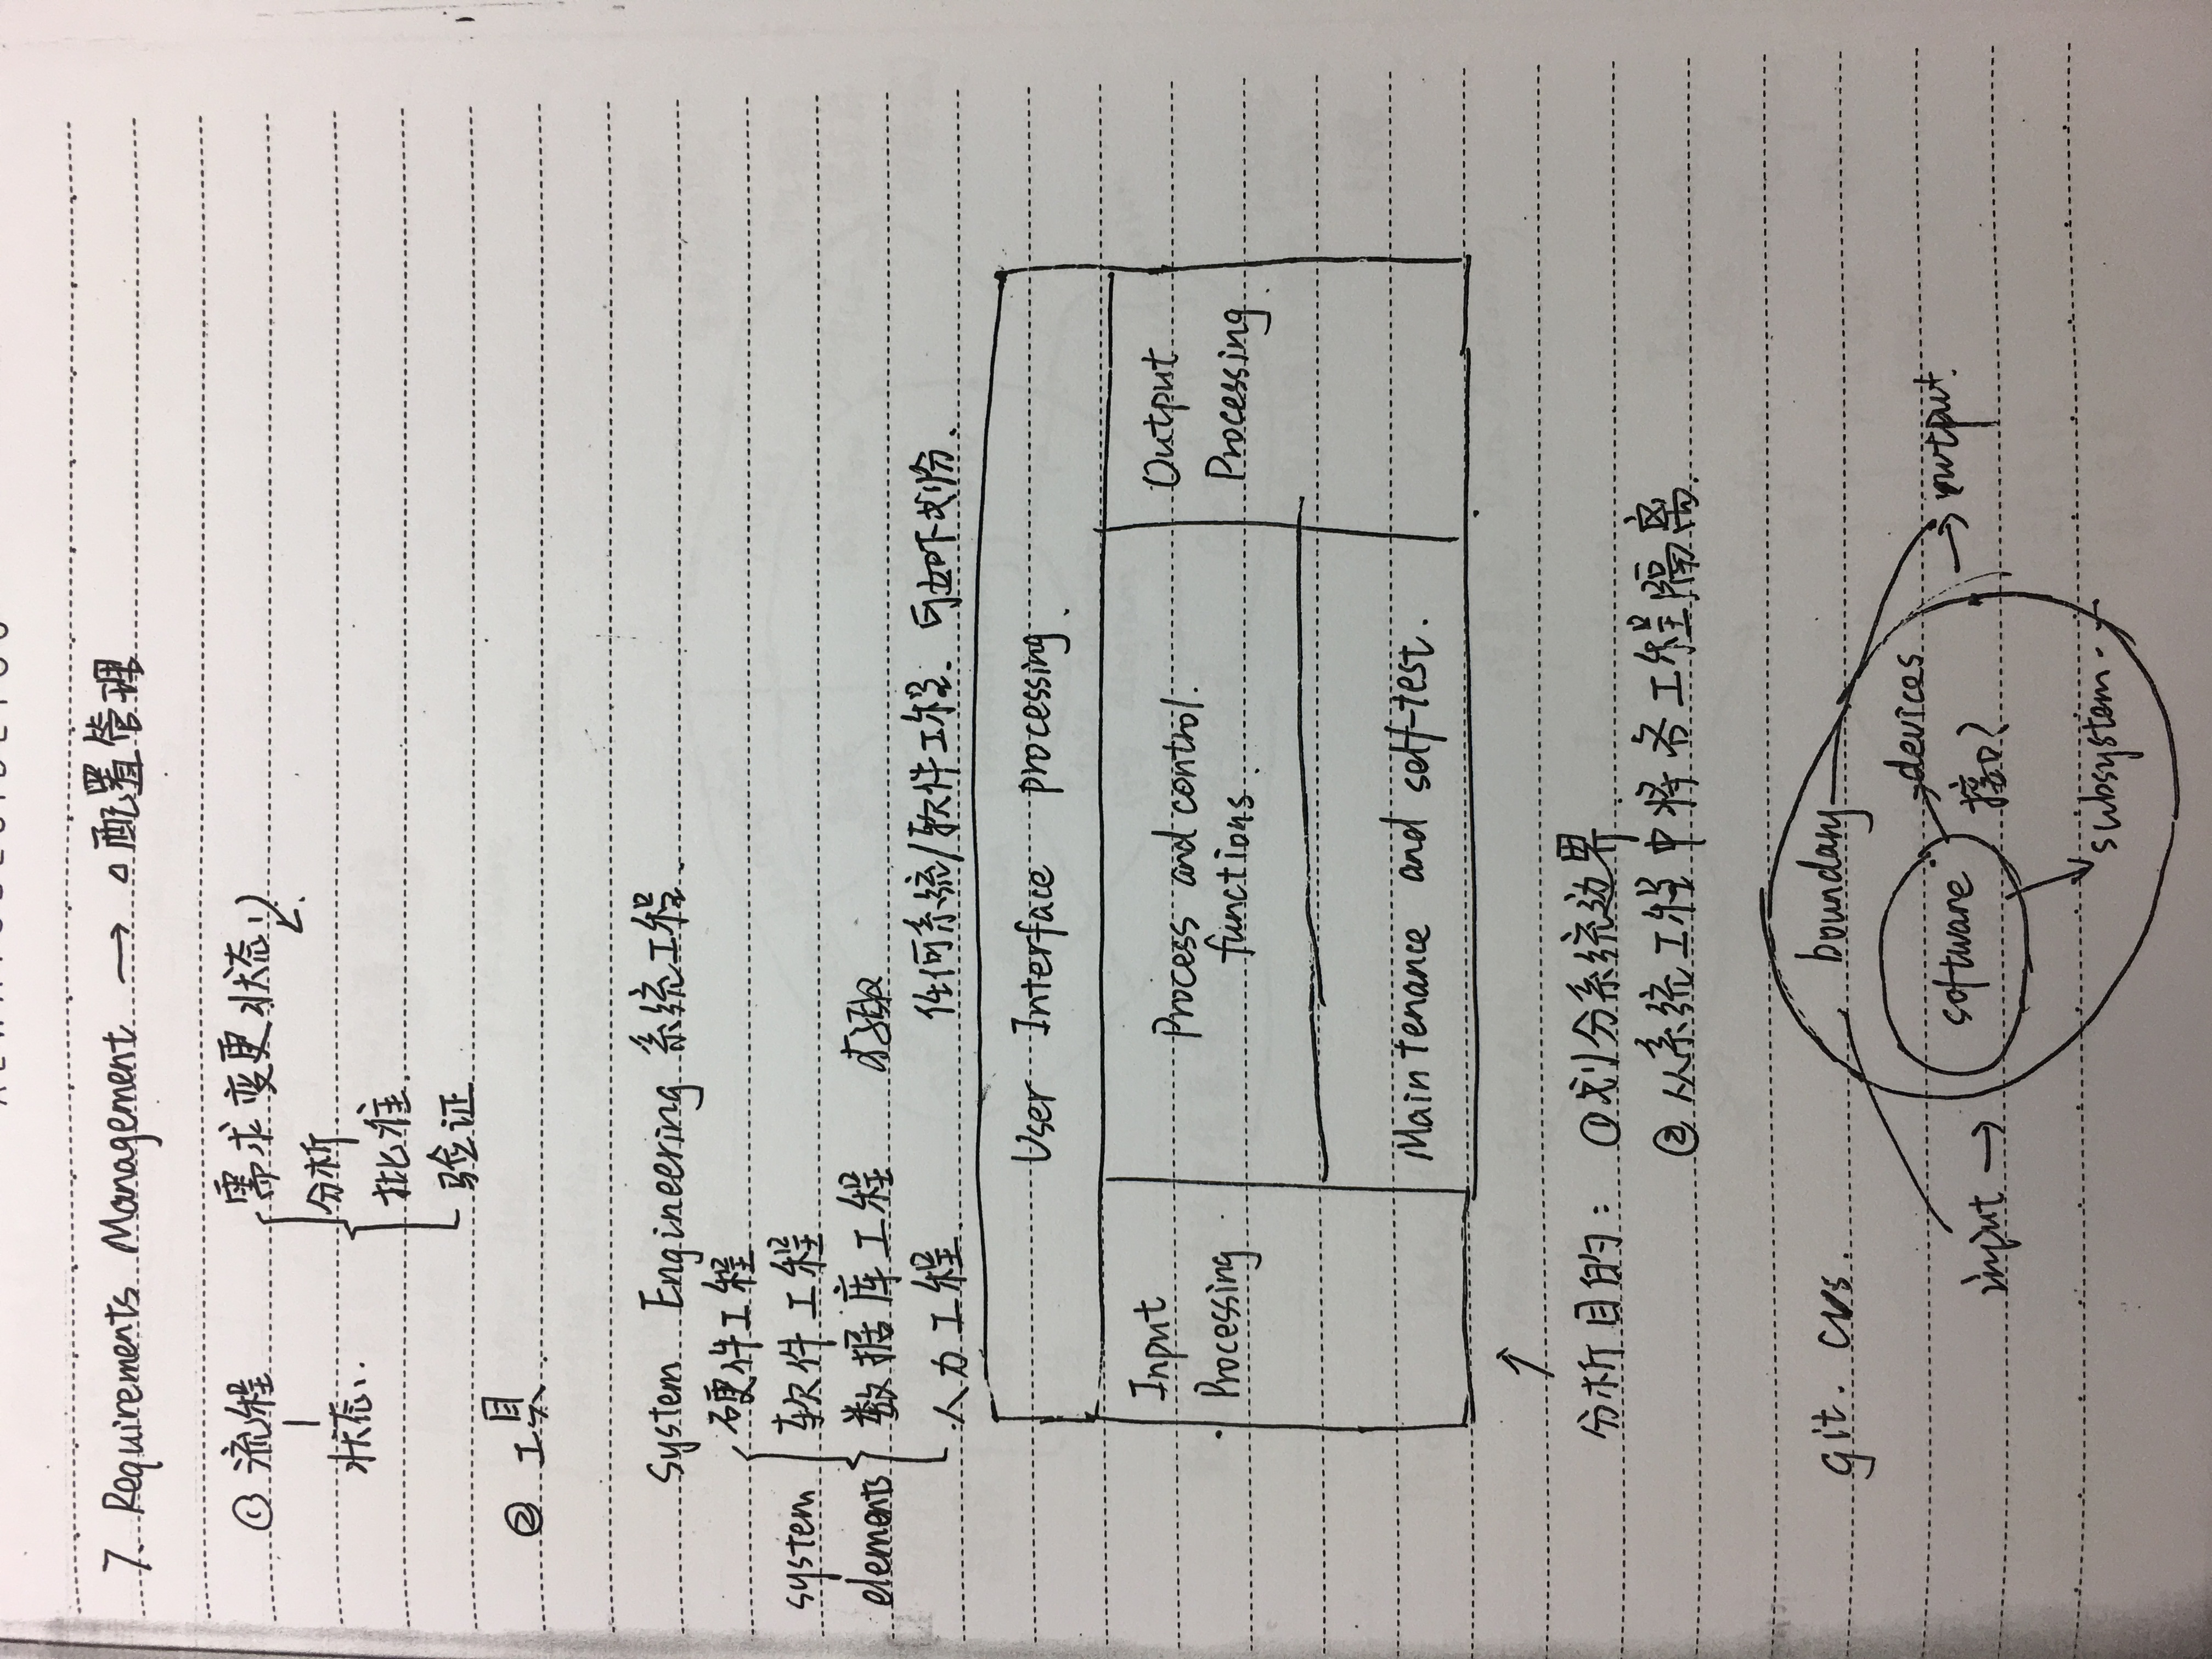 7. Requirements Management → △配置管理
① 流程
状态
需求变更状态
分析
批准
验证
② 工具
System Engineering 系统工程
system
elements
硬件工程
软件工程
数据库工程 存取
人力工程
任何系统/软件工程. 可如下划分.
User Interface processing.
Input
Processing
Process and control.
functions.
Output
Processing.
Maintenance and self-test.
↑
分析目的: ①划分系统边界.
②从系统工程中将各工程隔离.
git. cvs.
boundary
software
devices
接口?
input →
→ output.
subsystem.